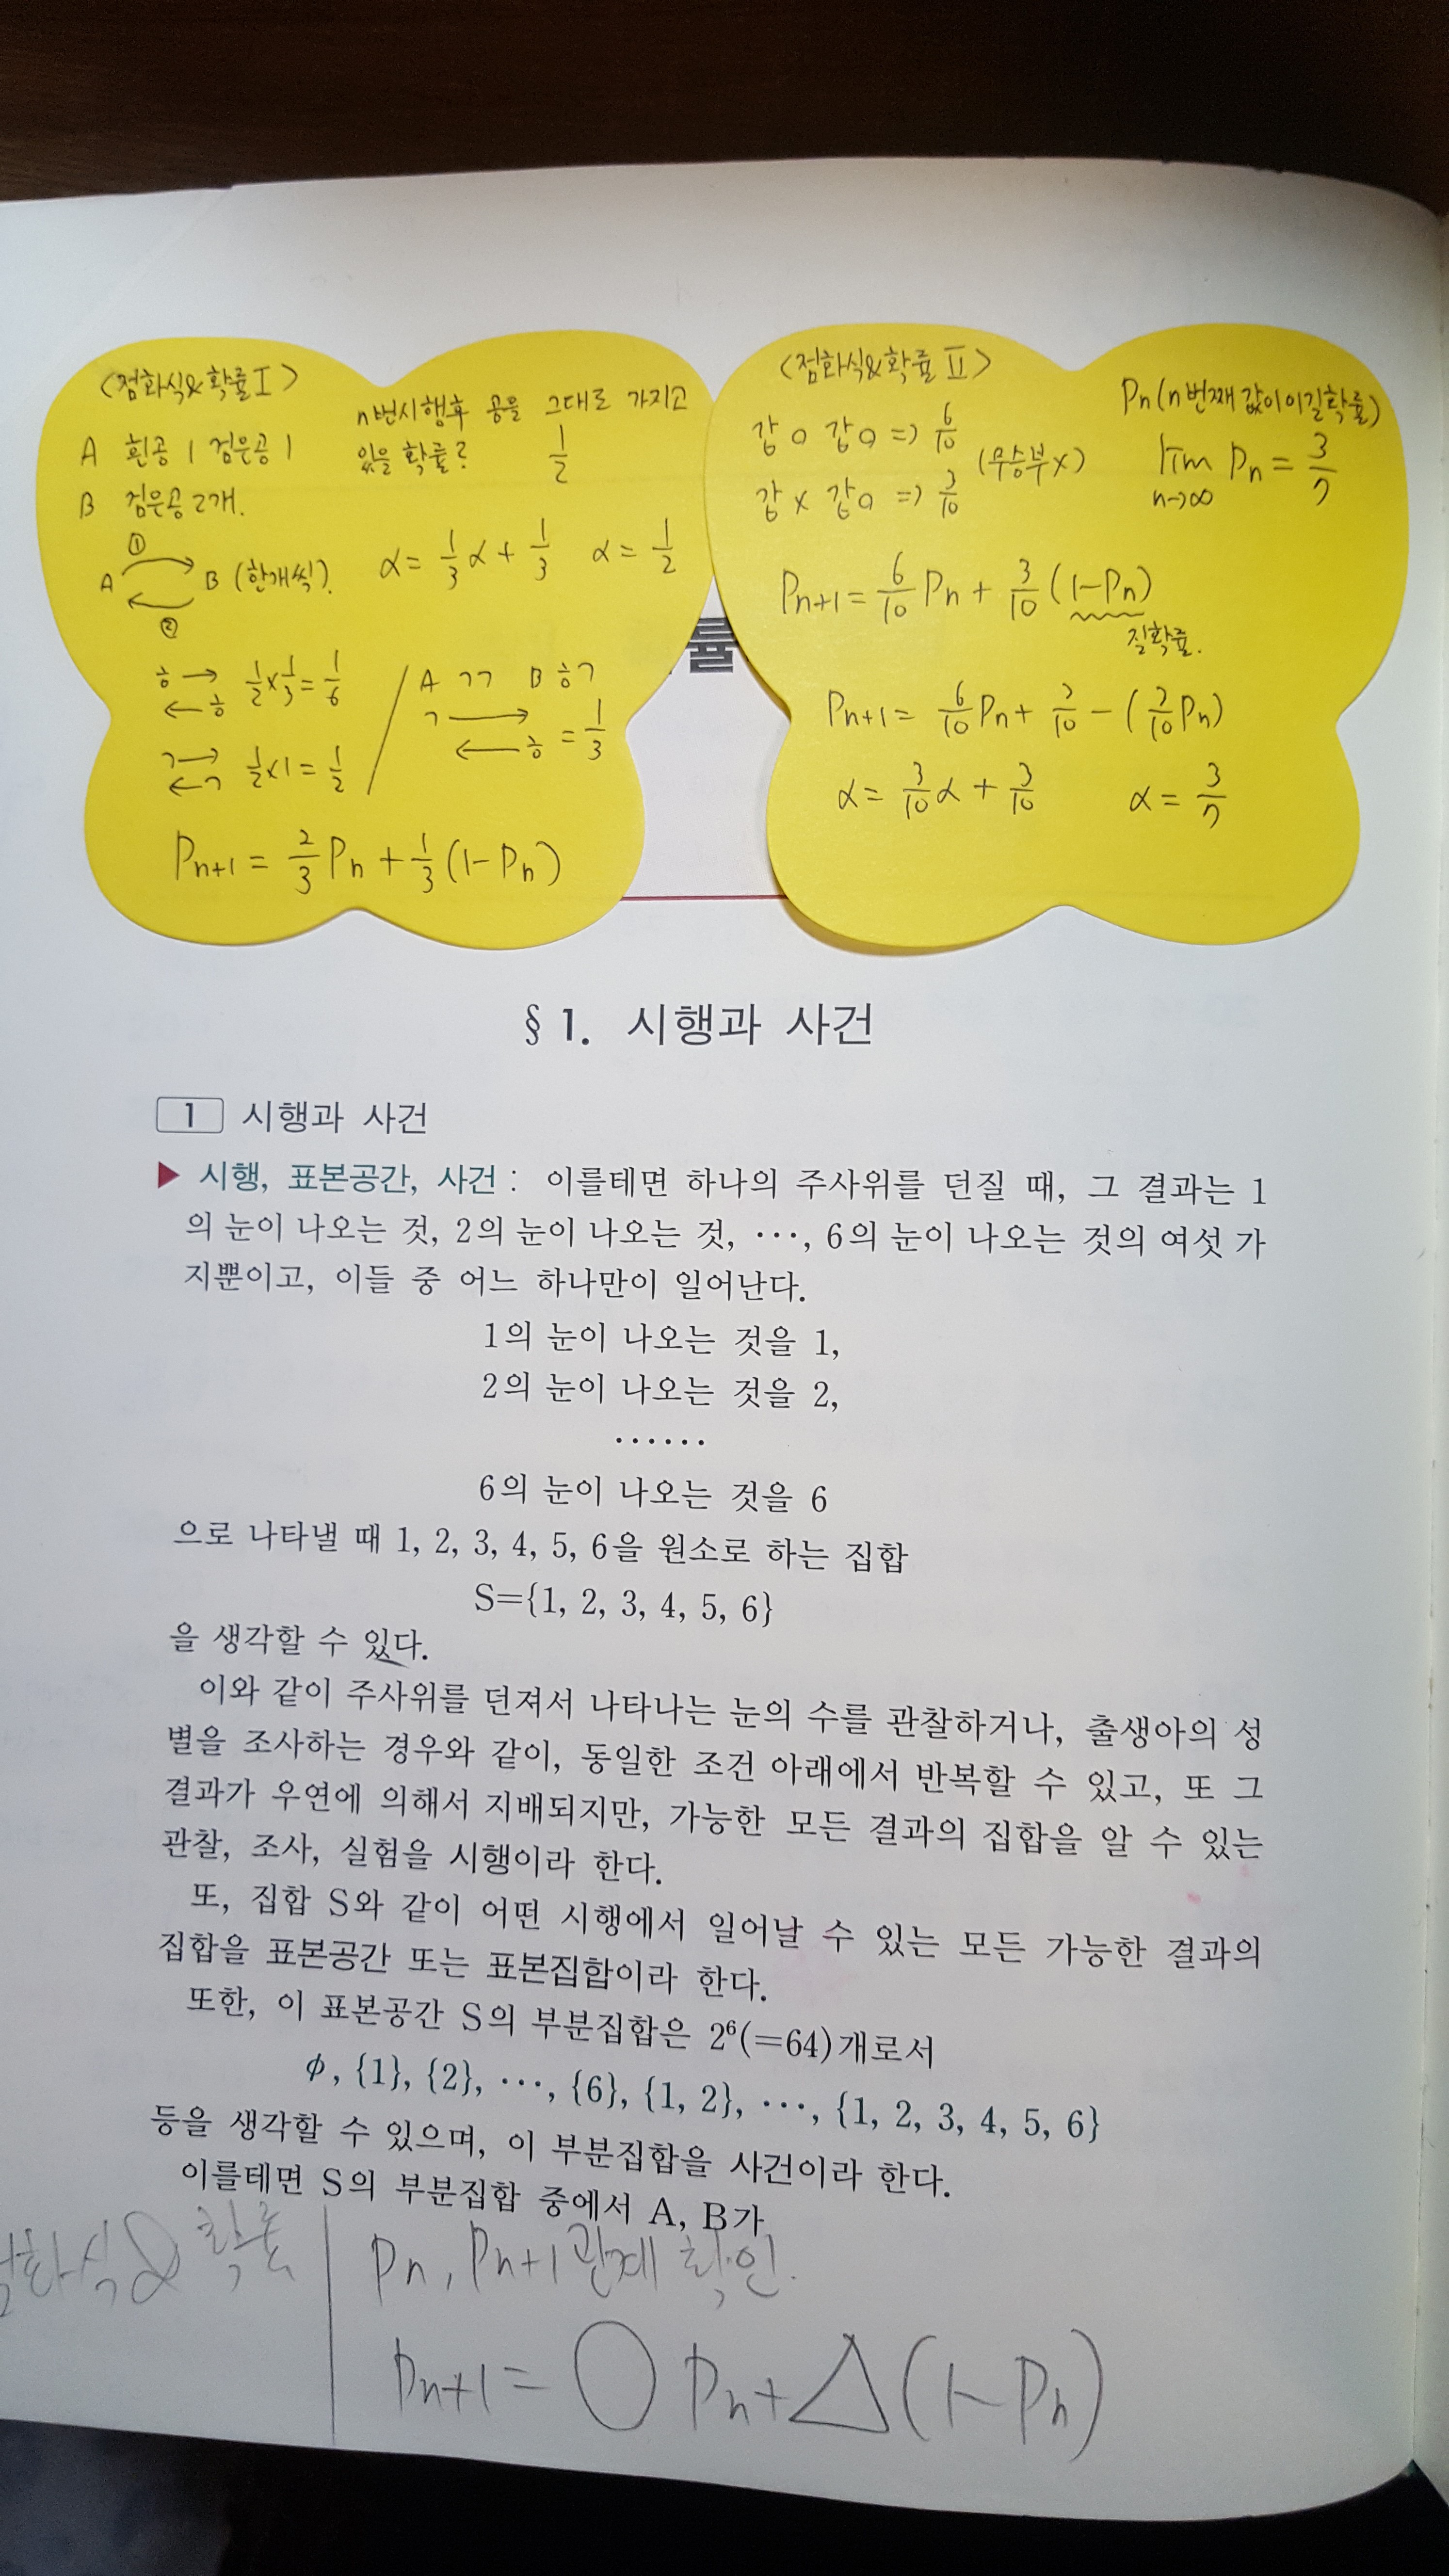 <점화식&확률 I>
A 흰공 1 검은공 1
B 검은공 2개.
①
A B (한개씩).
②
n번시행후 공을 그대로 가지고
있을 확률? 1/2
α = 1/3 α + 1/3 α = 1/2
ㅎ → 1/2 × 1/3 = 1/6
← ㅎ
ㄱ → 1/2 × 1 = 1/2
← ㄱ
A ㄱㄱ B ㅎㄱ
ㄱ →
← ㅎ = 1/3
Pn+1 = 2/3 Pn + 1/3 (1-Pn)
<점화식&확률 II>
Pn (n번째 갑이 이길확률)
갑 o 갑 o => 6/10
갑 x 갑 o => 3/10
(무승부x)
lim n→∞ Pn = 3/7
Pn+1 = 6/10 Pn + 3/10 (1-Pn)
질확률.
Pn+1 = 6/10 Pn + 3/10 - (3/10 Pn)
α = 3/10 α + 3/10 α = 3/7
률
§ 1. 시행과 사건
1 시행과 사건
▶ 시행, 표본공간, 사건 : 이를테면 하나의 주사위를 던질 때, 그 결과는 1
의 눈이 나오는 것, 2의 눈이 나오는 것, ⋯, 6의 눈이 나오는 것의 여섯 가
지뿐이고, 이들 중 어느 하나만이 일어난다.
1의 눈이 나오는 것을 1,
2의 눈이 나오는 것을 2,
⋯⋯
6의 눈이 나오는 것을 6
으로 나타낼 때 1, 2, 3, 4, 5, 6을 원소로 하는 집합
S={1, 2, 3, 4, 5, 6}
을 생각할 수 있다.
이와 같이 주사위를 던져서 나타나는 눈의 수를 관찰하거나, 출생아의 성
별을 조사하는 경우와 같이, 동일한 조건 아래에서 반복할 수 있고, 또 그
결과가 우연에 의해서 지배되지만, 가능한 모든 결과의 집합을 알 수 있는
관찰, 조사, 실험을 시행이라 한다.
또, 집합 S와 같이 어떤 시행에서 일어날 수 있는 모든 가능한 결과의
집합을 표본공간 또는 표본집합이라 한다.
또한, 이 표본공간 S의 부분집합은 2⁶(=64)개로서
ϕ, {1}, {2}, ⋯, {6}, {1, 2}, ⋯, {1, 2, 3, 4, 5, 6}
등을 생각할 수 있으며, 이 부분집합을 사건이라 한다.
이를테면 S의 부분집합 중에서 A, B가
점화식& 확률 Pn, Pn+1 관계 확인.
Pn+1 = ○ Pn + △ (1-Pn)